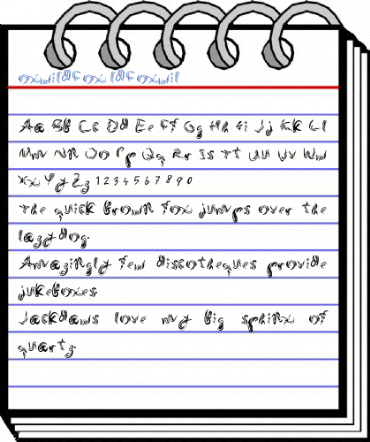 Aa Bb Cc Dd Ee Ff Gg Hh Ii Jj Kk Ll
Mm Nn Oo Pp Qq Rr Ss Tt Uu Vv Ww
Xx Yy Zz 1 2 3 4 5 6 7 8 9 0
The quick brown fox jumps over the
lazy dog.
Amazingly few discotheques provide
jukeboxes.
Jackdaws love my big sphinx of
quartz.